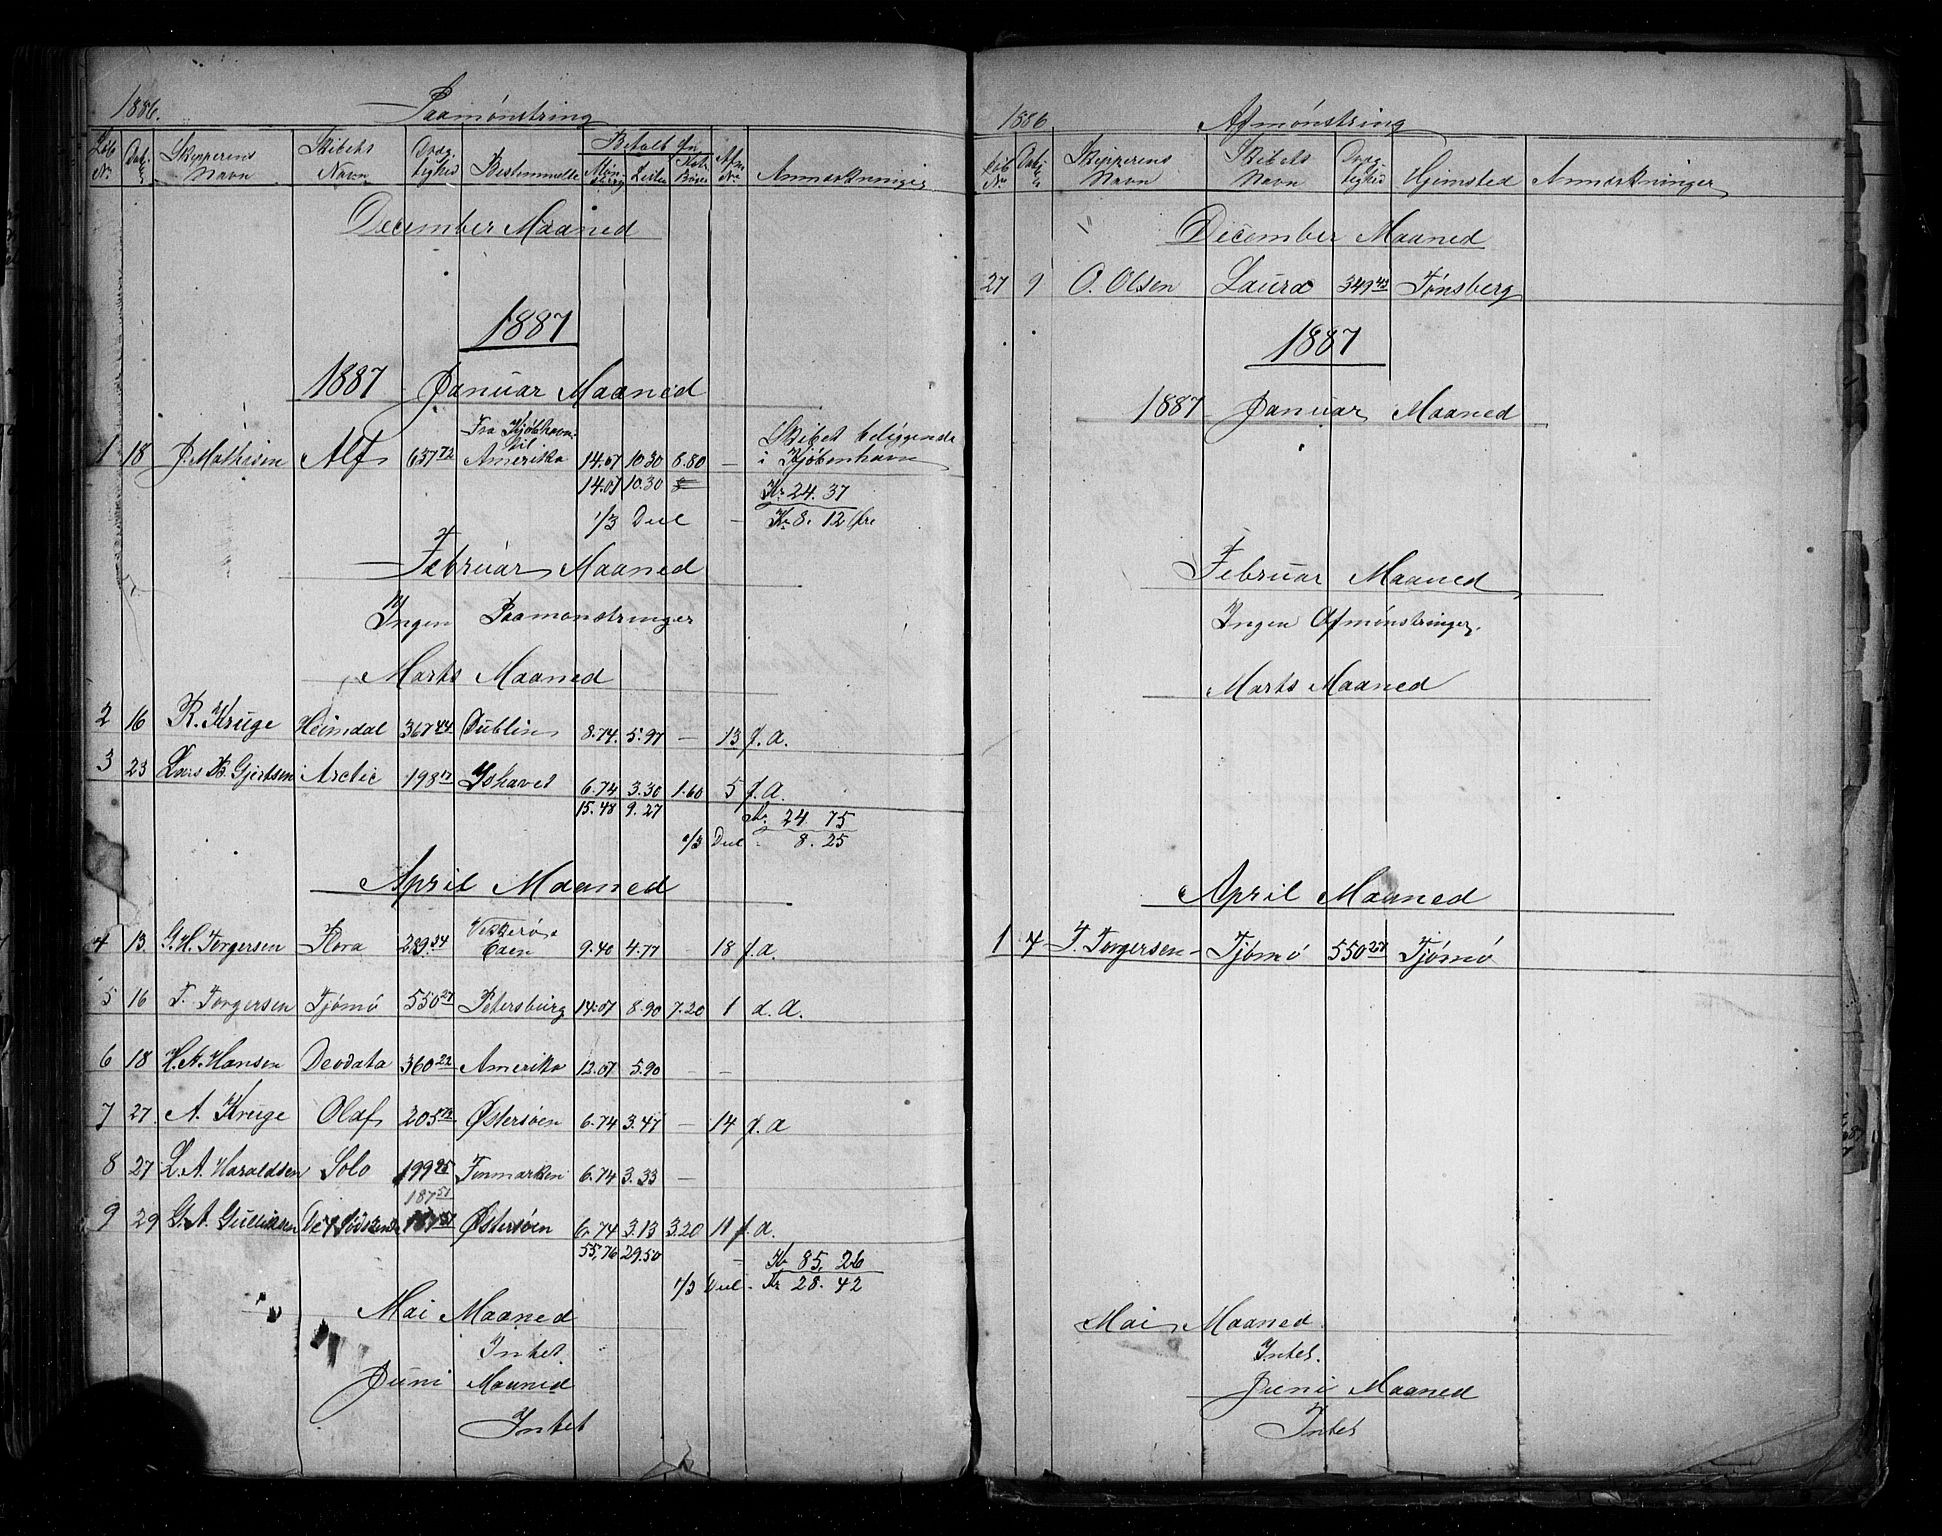 1886.
Paamønstring
Løb No
Dat.
Skipperens Navn
Skibets Navn
Dræg-tighed
Bestemmelse
Betalt for
Mønstring
Lister
Afm. No
Anmærkninger
December Maaned
1887
1887 Januar Maaned
1 18 J. Mathisen Alf 637 72 Fra Kjøbhavn til Amerika 14.07 10.30 8.80 — Skibet beliggende i Kjøbenhavn
14.07 10.30 Kr 24.37
1/3 Deel — Kr 8.12 Øre
Februar Maaned
Ingen Paamønstringer
Marts Maaned
2 16 R. Kruge Heimdal 367 44 Dublin 8.74 5.97 — 13 f. a.
3 23 Lars B. Gjertsen Arctic 198 Ishavet 6.74 3.30 1.60 5 f. a.
15.48 9.27 Kr. 24.75
1/3 Deel 8.25
April Maaned
4 13 G. H. Torgersen Flora 289.54 Caen 9.40 4.77 — 18 f. a.
5 16 T. Torgersen Tjømø 550 27 Petersburg 14.07 8.90 7.20 1 d. a.
6 18 H. A. Hansen Deodata 360 22 Amerika 12.07 5.90 — —
7 27 A. Kruge Olaf 205 72 Østersøen 6.74 3.47 — 14 f. a
8 27 L. A. Haraldsen Solo 199 95 Finmarken 6.74 3.33 —
187 51
9 29 G. A. Gulliksen De 7 Sødskende 187 51 Østersøen 6.74 3.13 3.20 11 f. a.
55.76 29.50 — Kr 85.26
1/3 Deel - Kr 28.42
Mai Maaned
Intet.
Juni Maaned
Intet
1886
Afmønstring
Løb No
Dat.
Skipperens Navn
Skibets Navn
Dræg-tighed
Hjemsted
Anmærkninger
December Maaned
27 9 O. Olsen Laura 349 43 Tønsberg
1887
1887 Januar Maaned
Februar Maaned
Ingen Afmønstringer.
Marts Maaned
April Maaned
1 4 T. Torgersen Tjømø 550 27 Tjømø
Mai Maaned
Intet.
Juni Maaned
Intet